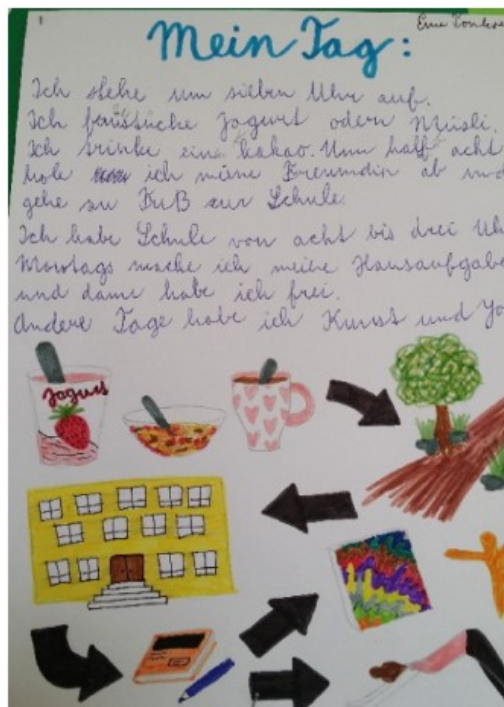 1
Mein Tag:
Ich stehe um sieben Uhr auf.
Ich früstücke Jogurt odern Müsli.
Ich trinke eine kakao. Umm half acht
hole ich meine Freundin ab und
gehe zu Fuß zur Schule.
Ich habe Schule von acht bis drei Uh
Montags mache ich meine Hausaufgabe
und dann habe ich frei.
Andere Tage habe ich Kunst und Yo
Jogurt